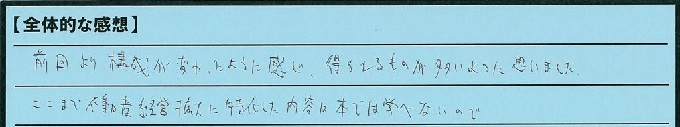 【全体的な感想】
前回より構成が変わったように感じ、得られるものが多いように思いました。
ここまで不動産経営拡大に特化した内容は本では学べないので